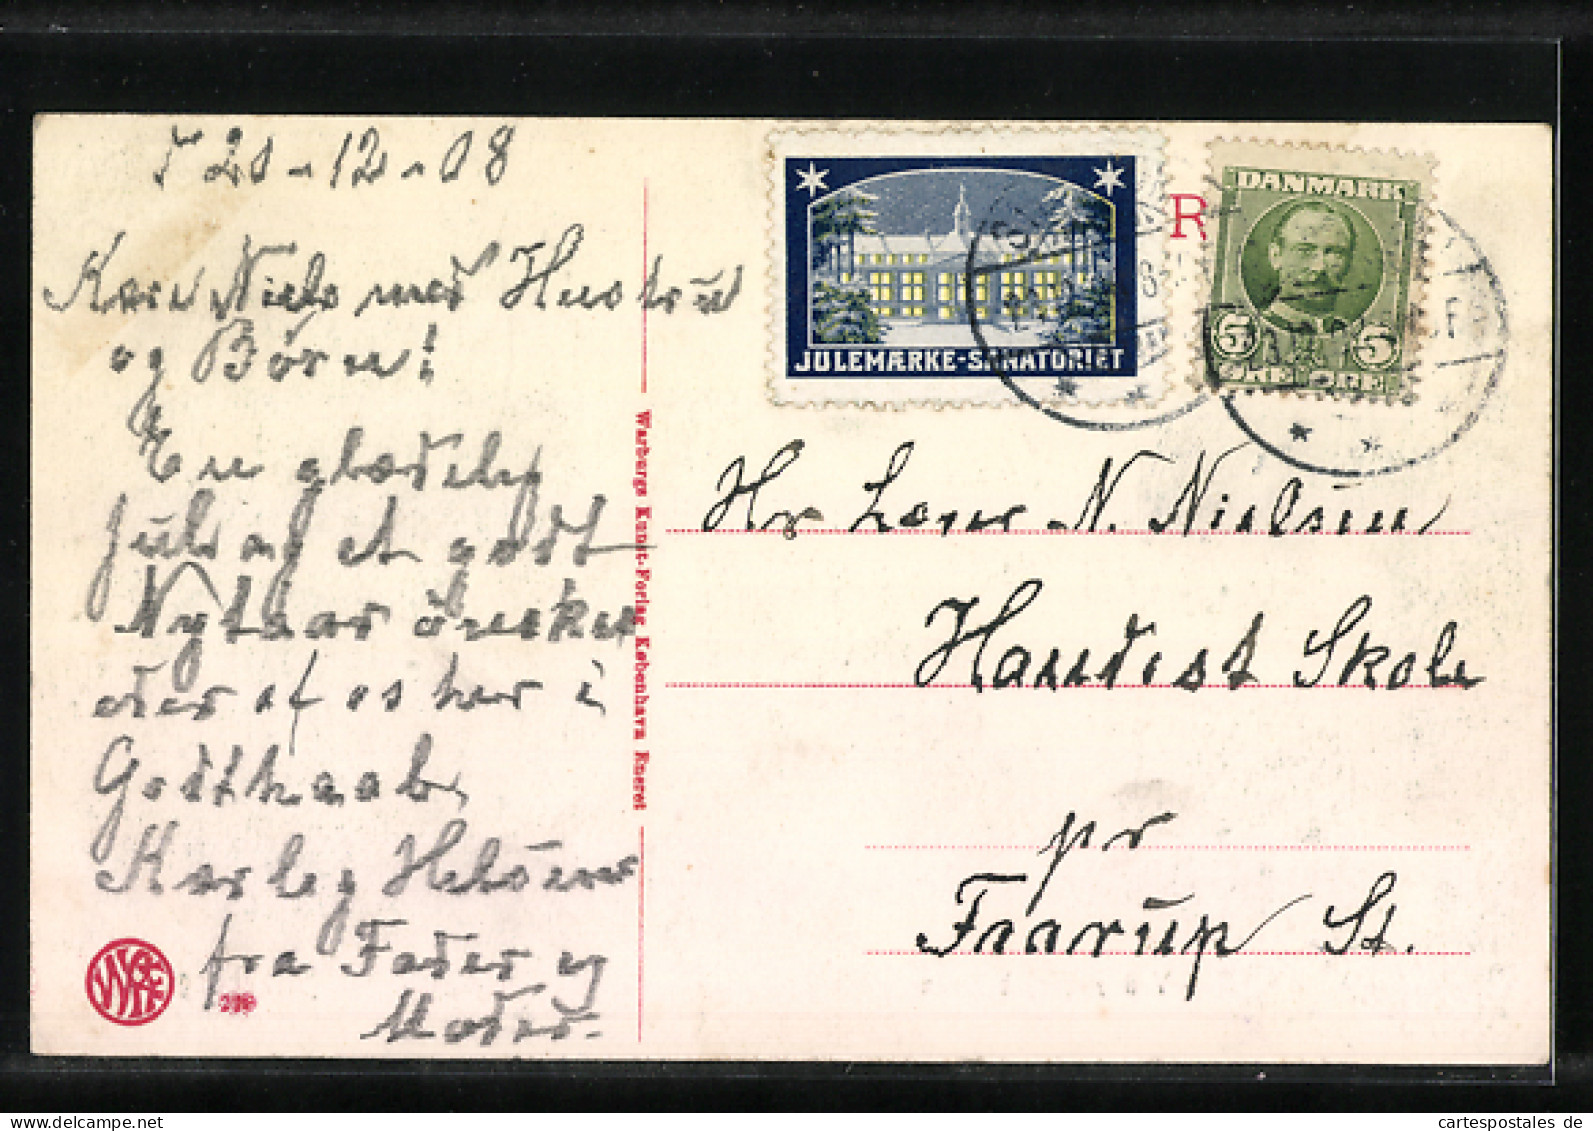 20-12-08
Kære Niels med Hustru
og Börn!
En glædelig
Jul og et godt
Nytaar önskes
eder af os her i
Godthaab
Kærlig Helsen
fra Fader og
Moder.
Warburgs Kunst-Forlag København Eneret
JULEMÆRKE-SANATORIET
R
DANMARK
5 5
ØRE ØRE
Hr Lærer N. Nielsen
Skole
pr
Faarup St.
cartespostales de